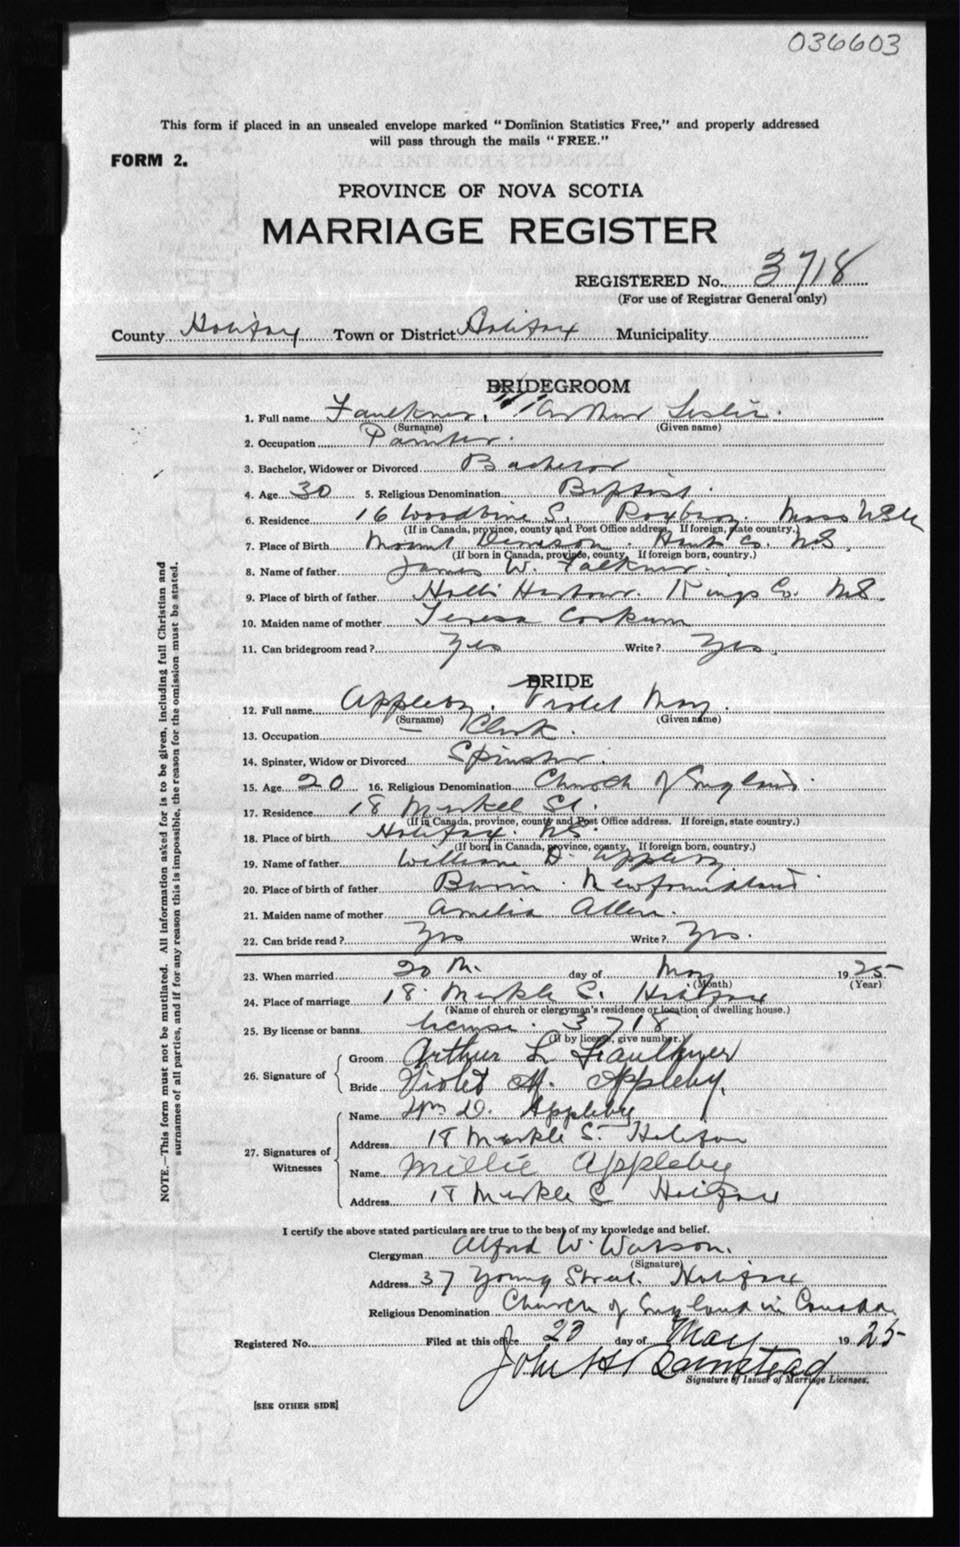 036603
This form if placed in an unsealed envelope marked "Dominion Statistics Free," and properly addressed
will pass through the mails "FREE."
FORM 2.
PROVINCE OF NOVA SCOTIA
MARRIAGE REGISTER
REGISTERED No. 3718
(For use of Registrar General only)
County Halifax Town or District Halifax Municipality
BRIDEGROOM
1. Full name Faulkner, Arthur Leslie.
(Surname) (Given name)
2. Occupation Painter.
3. Bachelor, Widower or Divorced Bachelor
4. Age 30 5. Religious Denomination Baptist.
6. Residence 16 Woodbine S. Roxbury. Mass USA
(If in Canada, province, county and Post Office address. If foreign, state country.)
7. Place of Birth Mount Denson. Hants Co. N.S.
(If born in Canada, province, county. If foreign born, country.)
8. Name of father James W. Falkner.
9. Place of birth of father Halls Harbour. Kings Co. N.S.
10. Maiden name of mother Teresa Corkum
11. Can bridegroom read? Yes Write? Yes.
BRIDE
12. Full name Appleby, Violet May.
(Surname) (Given name)
13. Occupation Clerk.
14. Spinster, Widow or Divorced Spinster.
15. Age 20 16. Religious Denomination Church of England
17. Residence 18 Merkel St.
(If in Canada, province, county and Post Office address. If foreign, state country.)
18. Place of birth Halifax. N.S.
(If born in Canada, province, county. If foreign born, country.)
19. Name of father William D. Appleby
20. Place of birth of father Burin. Newfoundland
21. Maiden name of mother Amelia Allen.
22. Can bride read? Yes Write? Yes.
23. When married 20 th. day of May 1925
(Month) (Year)
24. Place of marriage 18. Merkle S. Halifax
(Name of church or clergyman's residence or location of dwelling house.)
25. By license or banns license. 3718
(If by license, give number.)
26. Signature of Groom Arthur L Faulkner
Bride Violet M. Appleby.
27. Signatures of Witnesses Name Wm D. Appleby
Address 18 Merkle S. Halifax
Name Millie Appleby
Address 18 Merkle S Halifax
I certify the above stated particulars are true to the best of my knowledge and belief.
Clergyman Alfred W. Watson.
(Signature)
Address 37 Young Street. Halifax
Religious Denomination Church of England in Canada
Registered No. Filed at this office 23 day of May 1925
John H Barnstead
Signature of Issuer of Marriage Licenses.
[SEE OTHER SIDE]
NOTE.—This form must not be mutilated. All information asked for is to be given, including full Christian and
surnames of all parties, and if for any reason this is impossible, the reason for the omission must be stated.